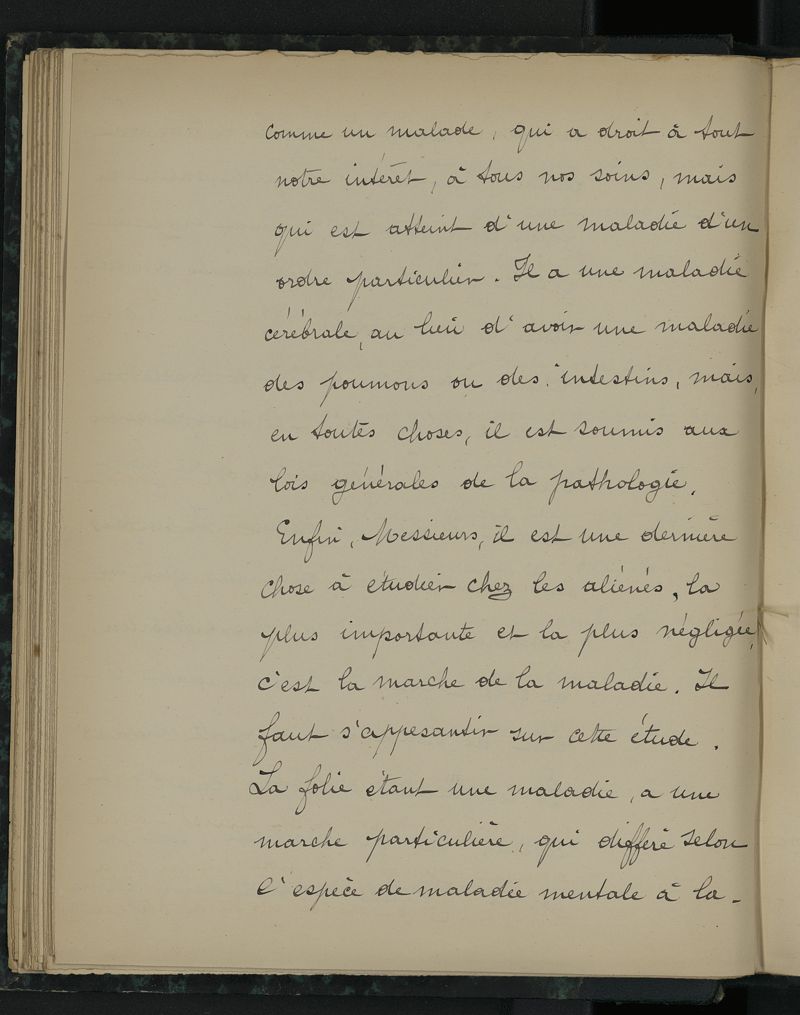 comme un malade, qui a droit à tout
notre intérêt, à tous nos soins, mais
qui est atteint d'une maladie d'un
ordre particulier. Il a une maladie
cérébrale, au lieu d'avoir une maladie
des poumons ou des intestins, mais,
en toutes choses, il est soumis aux
lois générales de la pathologie.
Enfin, Messieurs, il est une dernière
chose à étudier chez les aliénés, la
plus importante et la plus négligée,
c'est la marche de la maladie. Il
faut s'appesantir sur cette étude.
La folie étant une maladie, a une
marche particulière, qui diffère selon
l'espèce de maladie mentale à la-